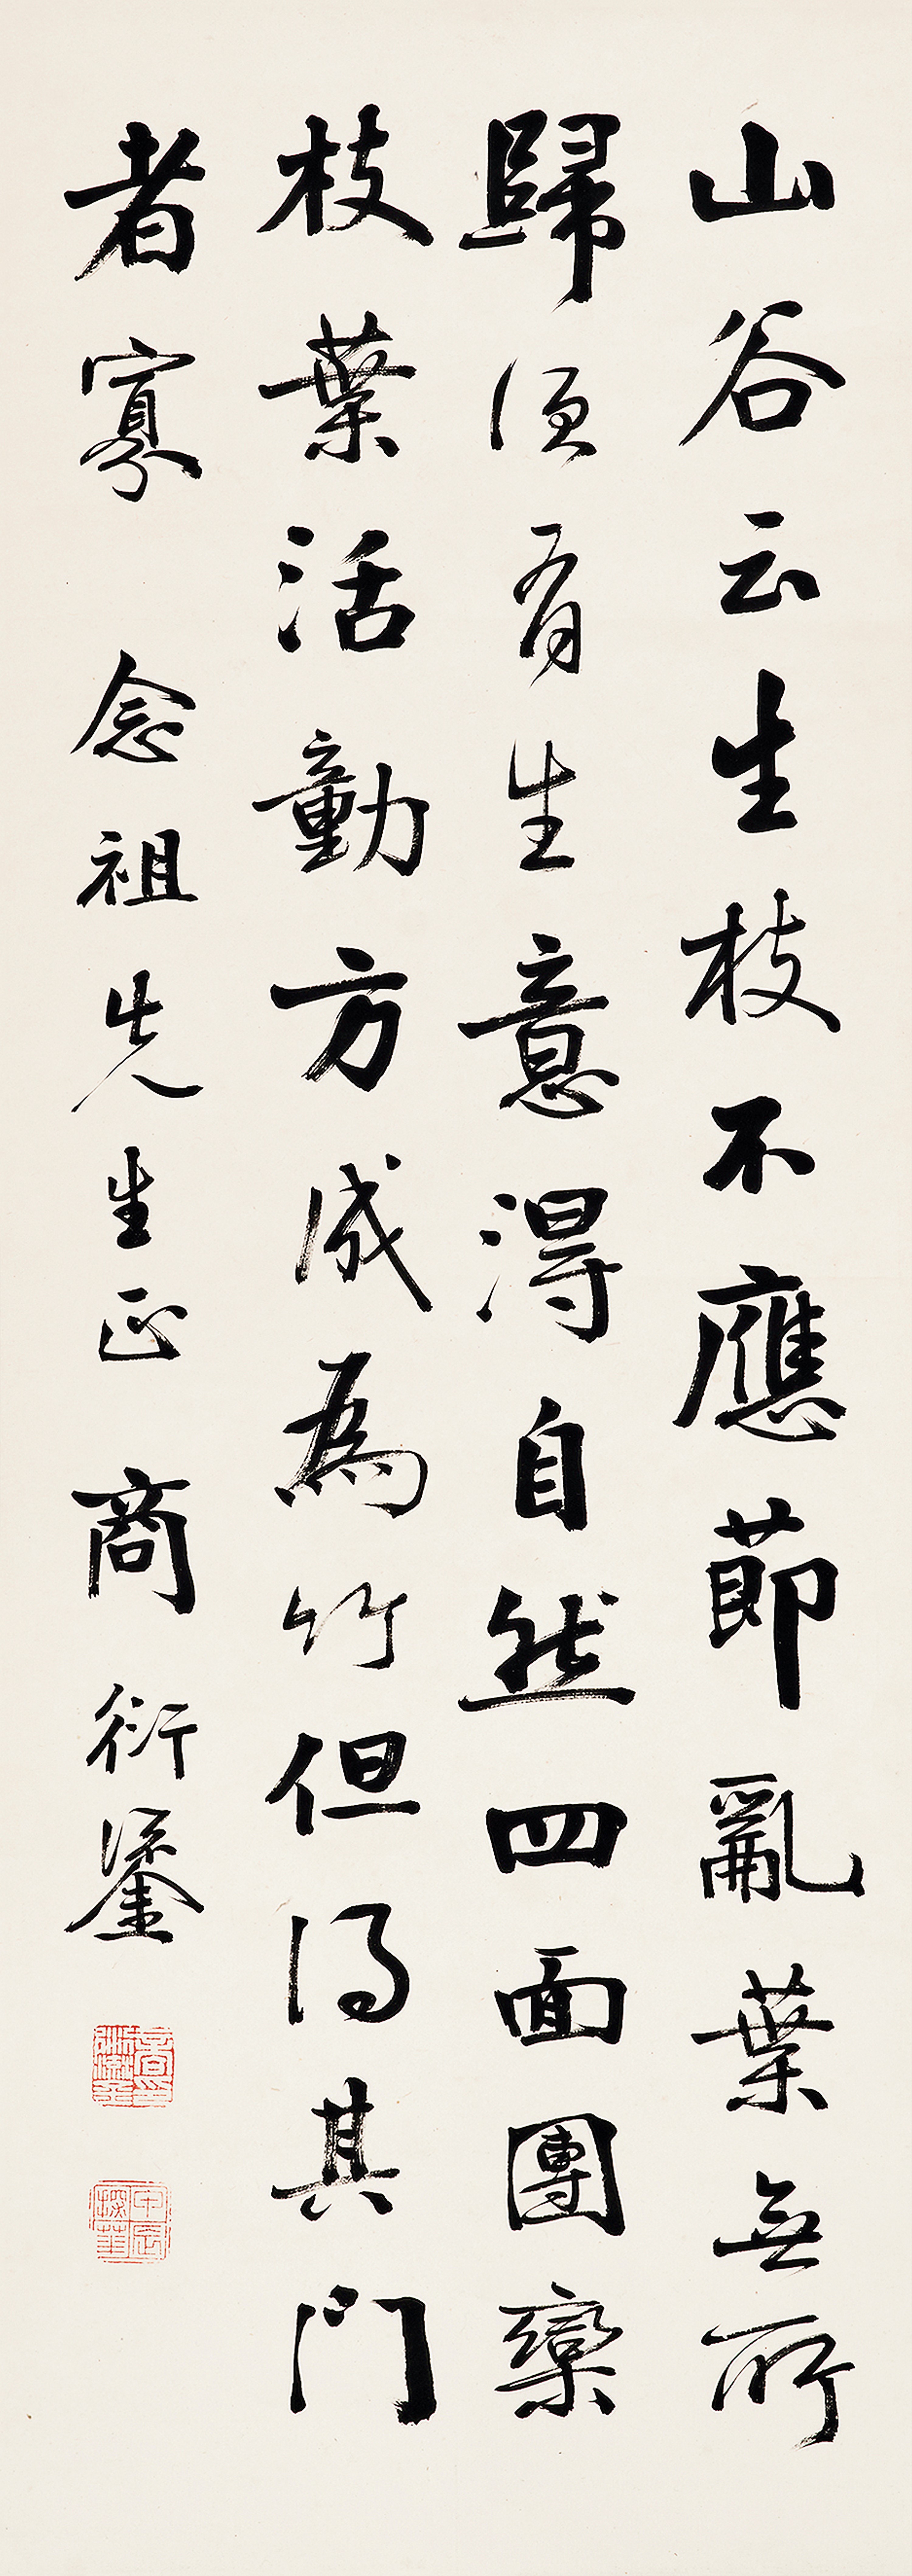 山谷云生枝不應節亂葉無所
歸須有生意得自然四面團欒
枝葉活動方成為竹但得其門
者寡 念祖先生正 商衍鎏
甲辰探華